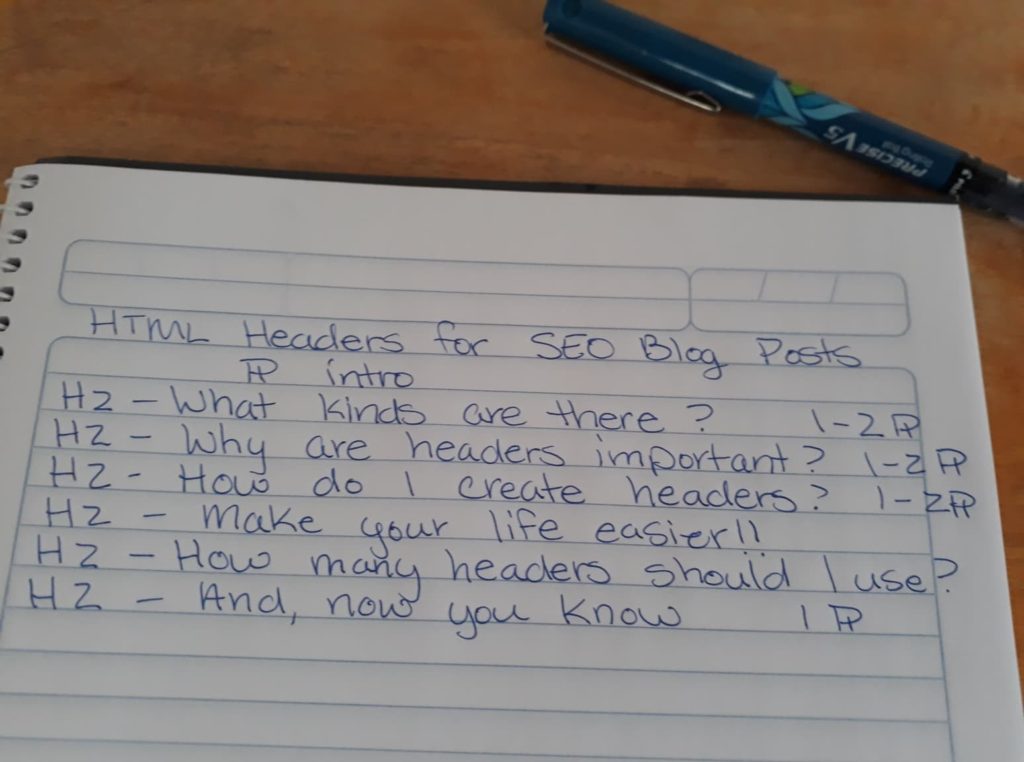 PRECISE V5
rolling ball
HTML Headers for SEO Blog Posts
¶ intro
H2 - What kinds are there? 1-2 ¶
H2 - Why are headers important? 1-2 ¶
H2 - How do I create headers? 1-2 ¶
H2 - Make your life easier!!
H2 - How many headers should I use?
H2 - And, now you know 1 ¶